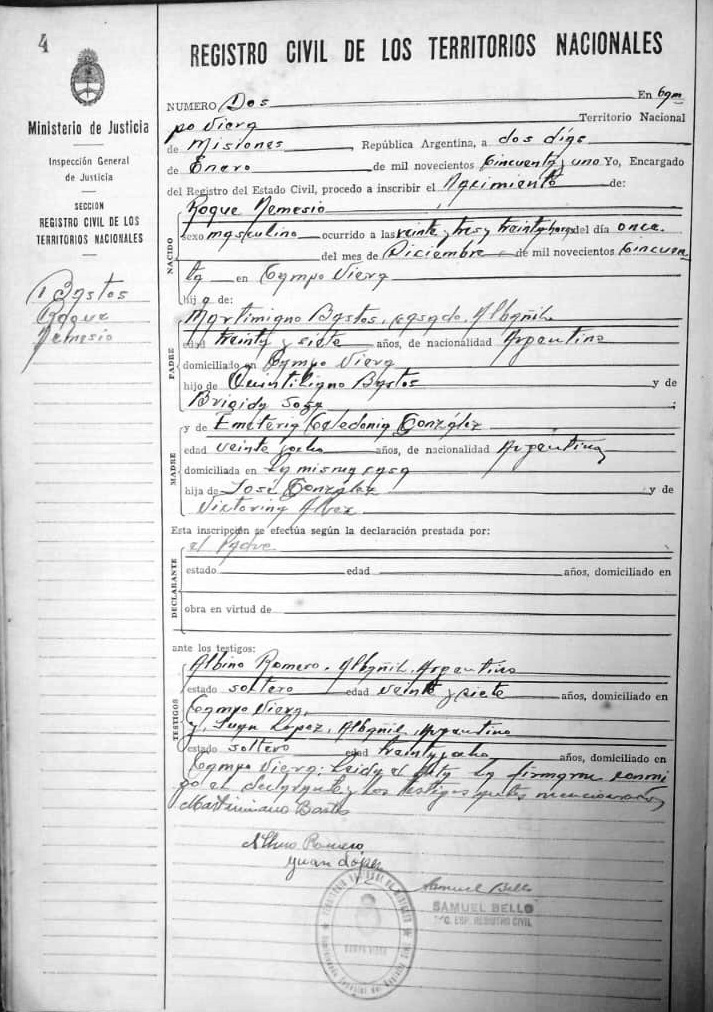 4
REGISTRO CIVIL DE LOS TERRITORIOS NACIONALES
Ministerio de Justicia
Inspección General
de Justicia
SECCION
REGISTRO CIVIL DE LOS
TERRITORIOS NACIONALES
Bastos
Roque
Nemesio
NUMERO Dos En Cam
po Viera Territorio Nacional
de Misiones, República Argentina, a dos días
de Enero de mil novecientos Cincuenta y uno Yo, Encargado
del Registro del Estado Civil, procedo a inscribir el Nacimiento de:
NACIDO
Roque Nemesio
sexo masculino ocurrido a las veinte y tres y treinta horas del día once
del mes de Diciembre de mil novecientos Cincuen
ta en Campo Viera
hijo de:
PADRE
Martimiano Bastos, casado, Albañil
edad treinta y siete años, de nacionalidad Argentina
domiciliado en Campo Viera
hijo de Quintiliano Bastos y de
Brigida Soza;
MADRE
y de Emeteria Celedonia González
edad veinte y ocho años, de nacionalidad Argentina
domiciliada en La misma casa
hija de José González y de
Victorina Alvez
Esta inscripción se efectúa según la declaración prestada por:
DECLARANTE
el Padre
estado edad años, domiciliado en
obra en virtud de
ante los testigos:
TESTIGOS
Albino Romero, Albañil, Argentino
estado soltero edad veinte y siete años, domiciliado en
Campo Viera,
y, Juan Lopez, Albañil, Argentino
estado soltero edad treinta y ocho años, domiciliado en
Campo Viera; Leida el Acta la firmaron conmi
go el declarante y los testigos antes mencionados
Martimiano Bastos
Albino Romero
Juan López
Samuel Bello
SAMUEL BELLO
ENC. ESP. REGISTRO CIVIL
CAMPO VIERA